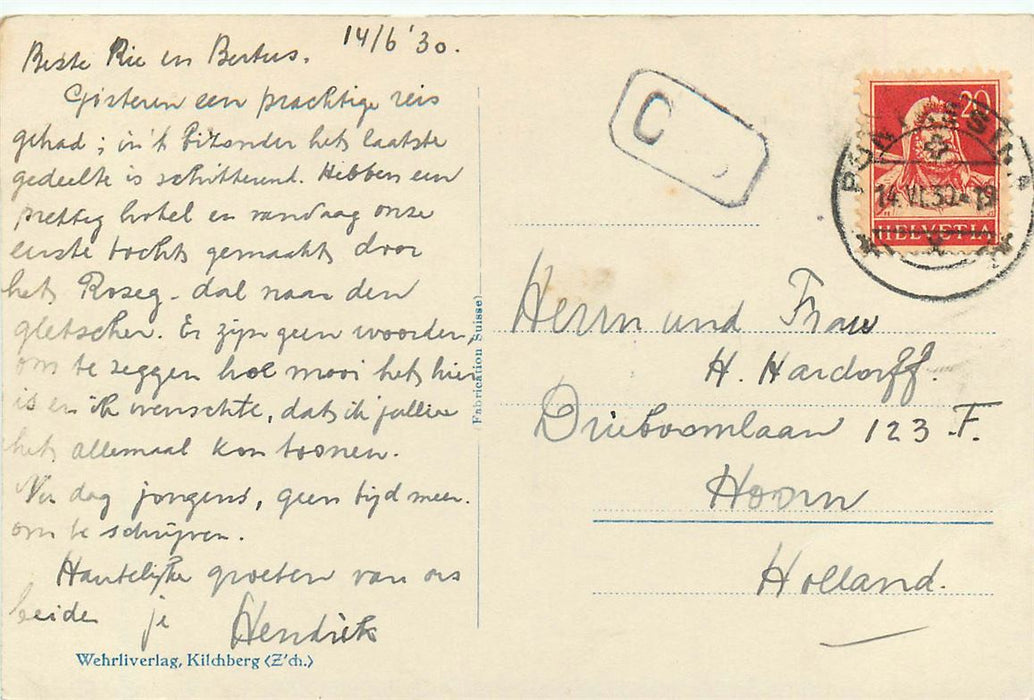 14/6 '30.
Beste Rie en Bertus.
Gisteren een prachtige reis
gehad; in 't bizonder het laatste
gedeelte is schitterend. Hebben een
prettig hotel en vandaag onze
eerste tocht gemaakt door
het Roseg-dal naar den
gletscher. Er zijn geen woorden,
om te zeggen hoe mooi het hier
is en ik wenschte, dat ik jullie
het allemaal kon toonen.
Nu dag jongens, geen tijd meer.
om te schrijven.
Hartelijke groeten van ons
beiden je Hendrik
Wehrliverlag, Kilchberg (Z'ch.)
Fabrication Suisse
C
20
HELVETIA
14.VI.30-19
Herrn und Frau
H. Hardorff.
Drieboomlaan 123 F.
Hoorn
Holland.